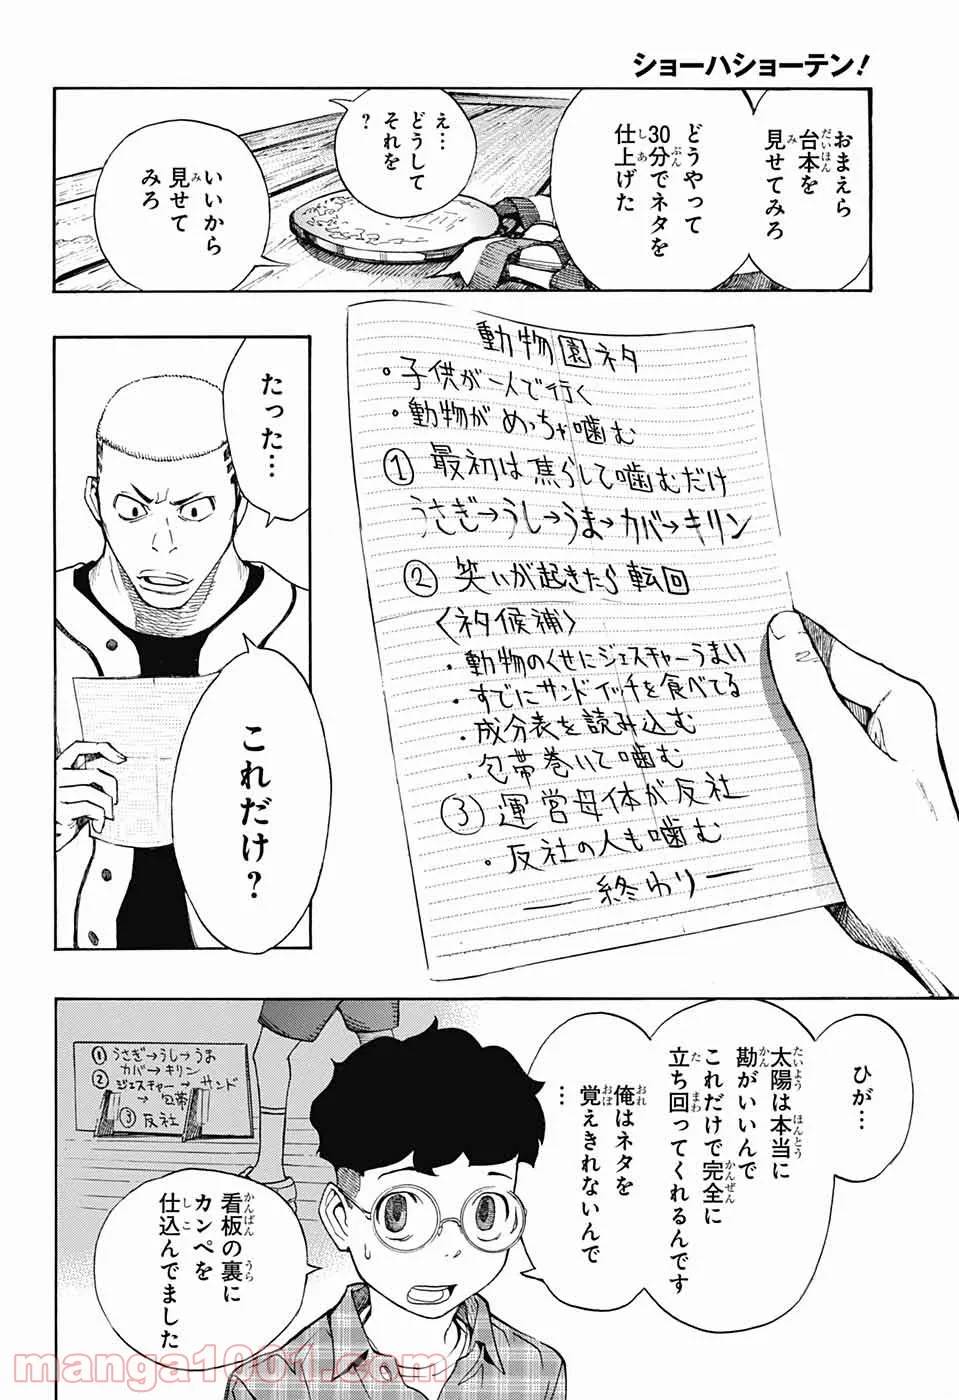 ショーハショーテン!
おまえら
台本を
見せてみろ
どうやって
30分でネタを
仕上げた
え…
どうして
それを
?
いいから
見せて
みろ
動物園ネタ
・子供が一人で行く
・動物がめっちゃ噛む
①最初は焦らして噛むだけ
うさぎ→うし→うま→カバ→キリン
②笑いが起きたら転回
〈ネタ候補〉
・動物のくせにジェスチャーうまい
・すでにサンドイッチを食べてる
・成分表を読み込む
・包帯巻いて噛む
③運営母体が反社
・反社の人も噛む
―終わり―
たった…
これだけ?
ひが…
太陽は本当に
勘がいいんで
これだけで完全に
立ち回ってくれるんです
俺はネタを
覚えきれないんで
…
①うさぎ→うし→うま
カバ→キリン
②ジェスチャー→サンド
→包帯
③反社
看板の裏に
カンペを
仕込んでました
manga1001.com